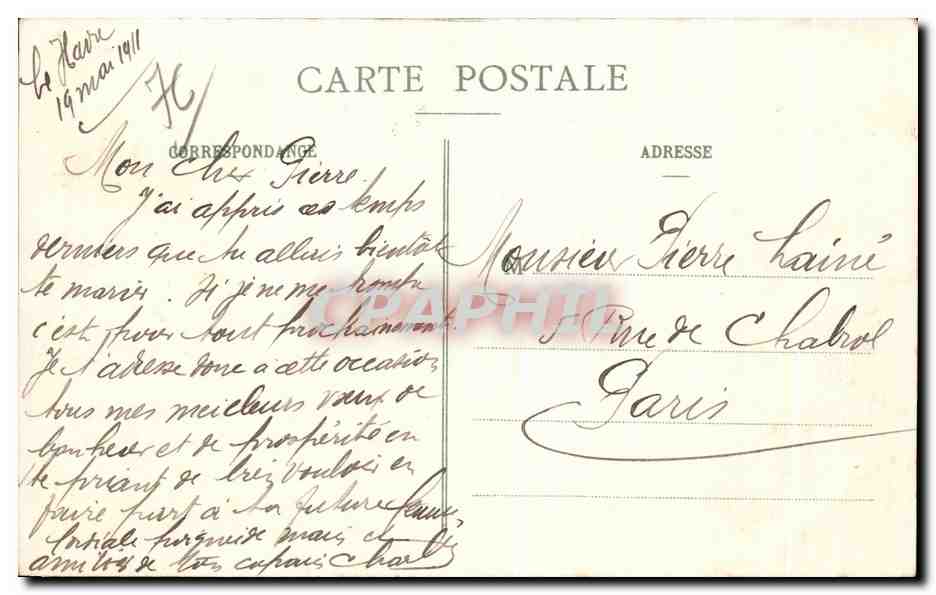 Le Havre
19 mai 1911
CARTE POSTALE
CORRESPONDANCE
ADRESSE
Mon cher Pierre
J'ai appris ces temps
derniers que tu allais bientôt
te marier. Si je ne me trompe
c'est pour tout prochainement
Je t'adresse donc à cette occasion
tous mes meilleurs vœux de
bonheur et de prospérité en
te priant de bien vouloir en
faire part à ta future femme
Cordiale poignée de main et
amitiés de ton copain Charles
Monsieur Pierre Lainé
5 Rue de Chabrol
Paris
CPAPHIL